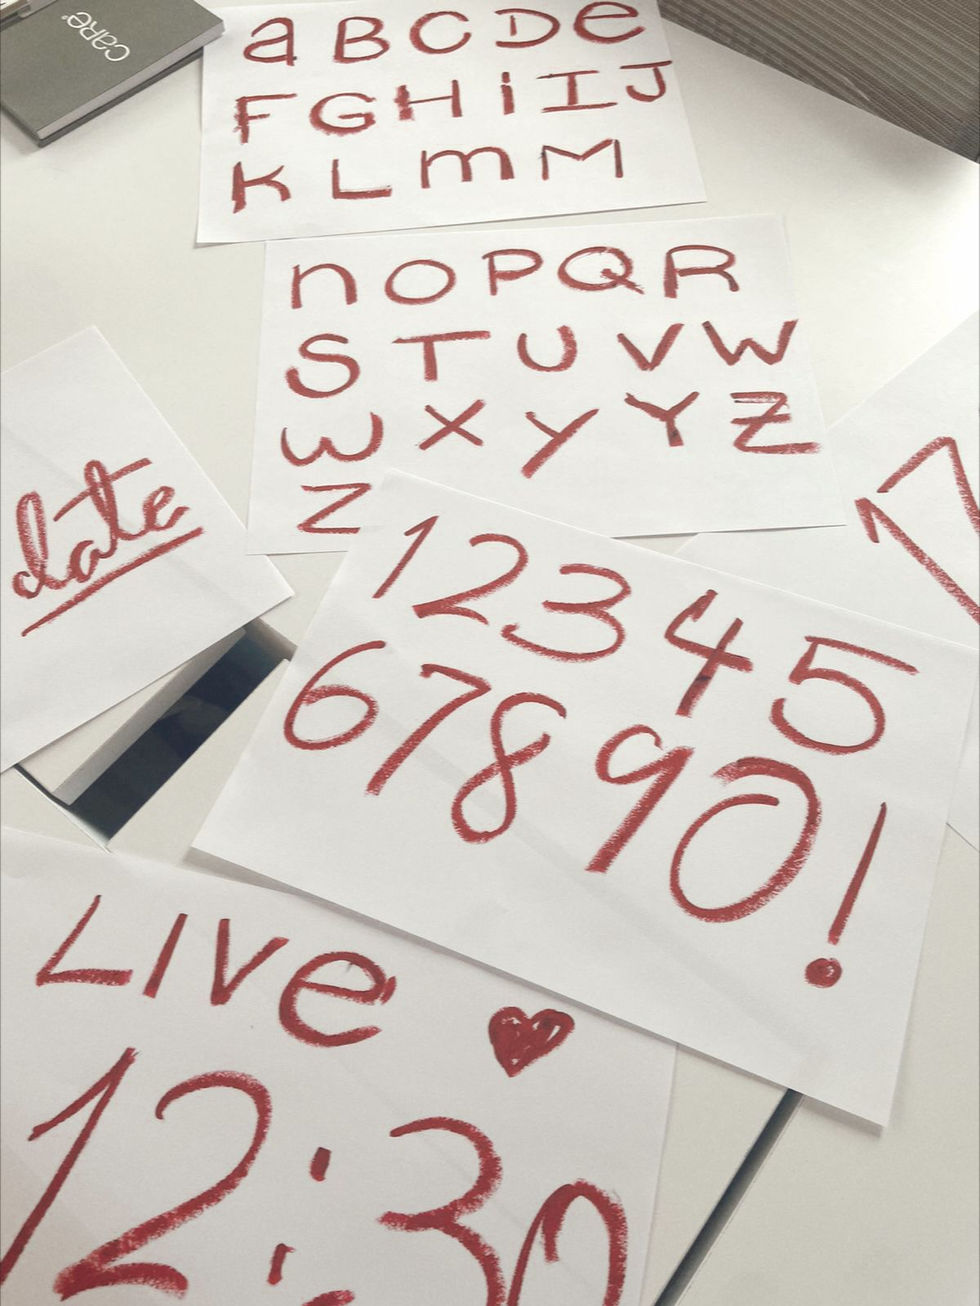 caRe
aBCDe
FGHiIJ
KLmM
nOPQR
STUVW
WXyYZ
Z
date
12345
67890!
LIVe ♥
12:30